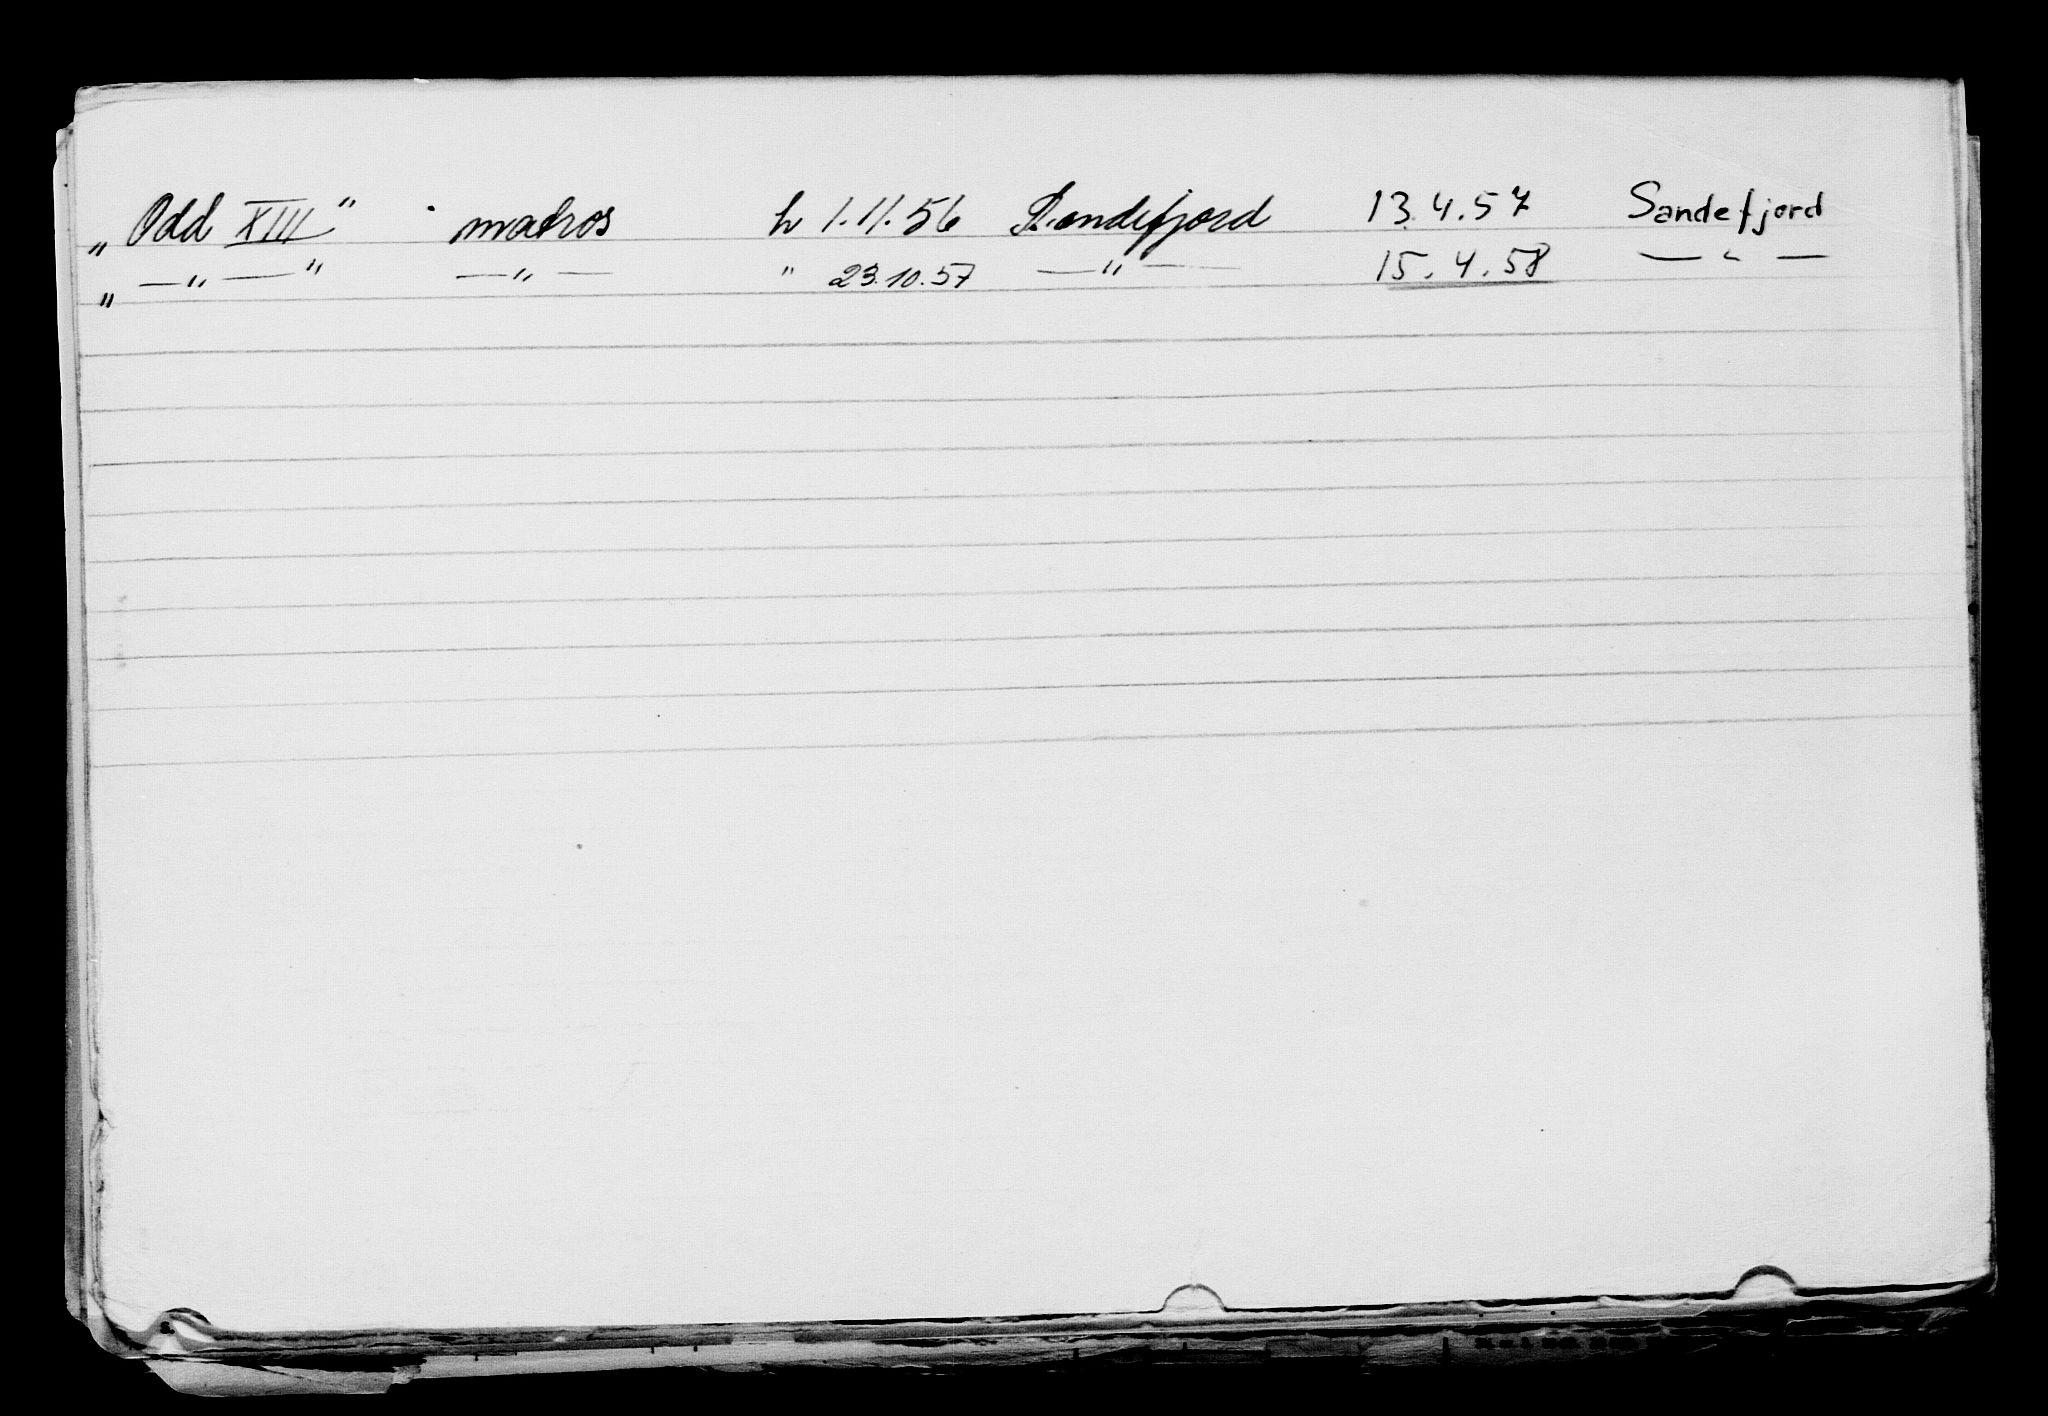 „Odd XIII” matros h 1.11.56 Sandefjord 13.4.57 Sandefjord
„—„—” —„— " 23.10.57 —„— 15.4.58 —„—